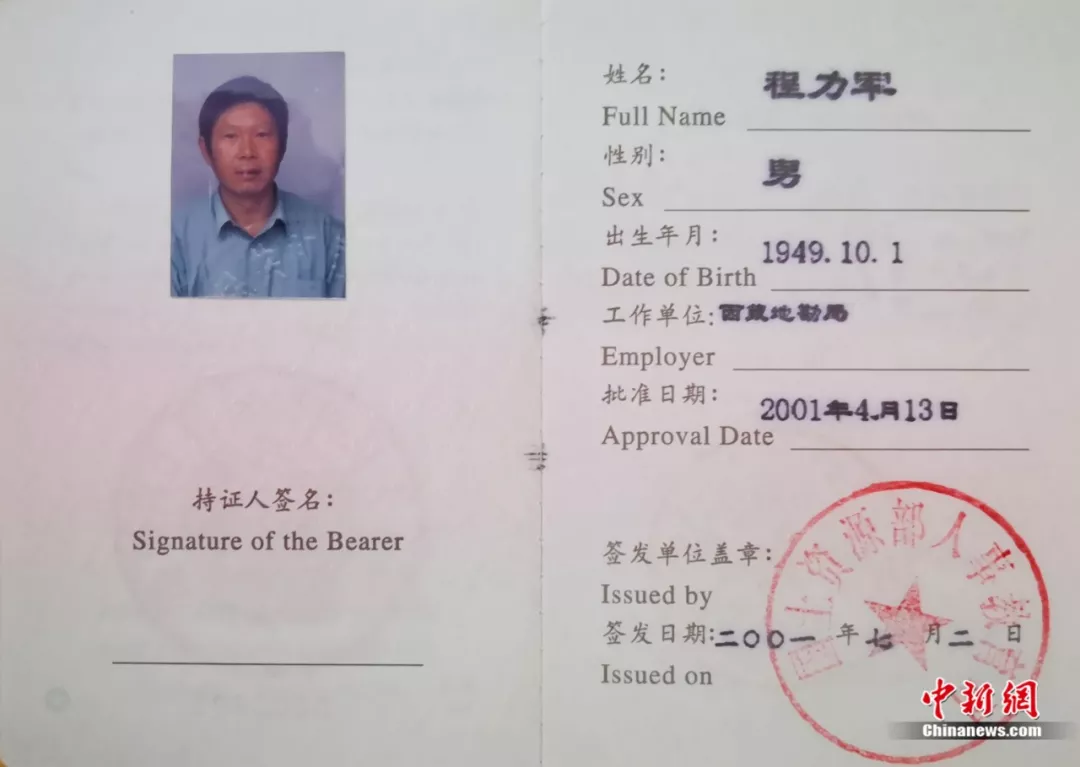 持证人签名：
Signature of the Bearer
姓名： 程力军
Full Name
性别： 男
Sex
出生年月： 1949.10.1
Date of Birth
工作单位： 西藏地勘局
Employer
批准日期： 2001年4月13日
Approval Date
签发单位盖章：
Issued by
签发日期：二〇〇一年七月二日
Issued on
国土资源部人事教育
中新網
Chinanews.com